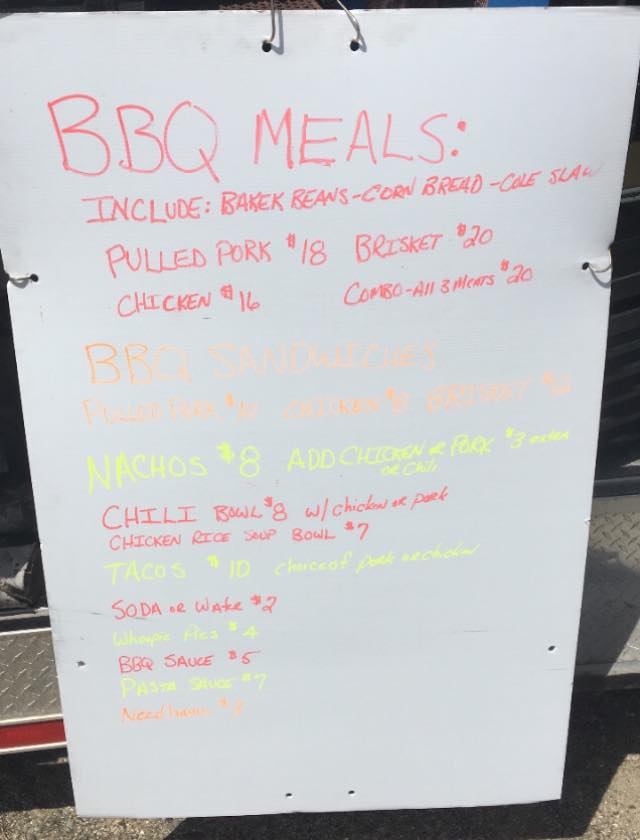 BBQ MEALS:
INCLUDE: BAKEK BEANS-CORN BREAD-COLE SLAW
PULLED PORK $18 BRISKET $20
CHICKEN $16 COMBO-All 3 MEATS $20
BBQ SANDWICHES
PULLED PORK $10 CHICKEN $8 BRISKET $12
NACHOS $8 ADD CHICKEN or PORK $3 extra
or Chili
CHILI BOWL $8 w/ chicken or pork
CHICKEN RICE SOUP BOWL $7
TACOS $10 choice of pork or chicken
SODA or Water $2
Whoopie Pies $4
BBQ SAUCE $5
PASTA SAUCE $7
Needhams